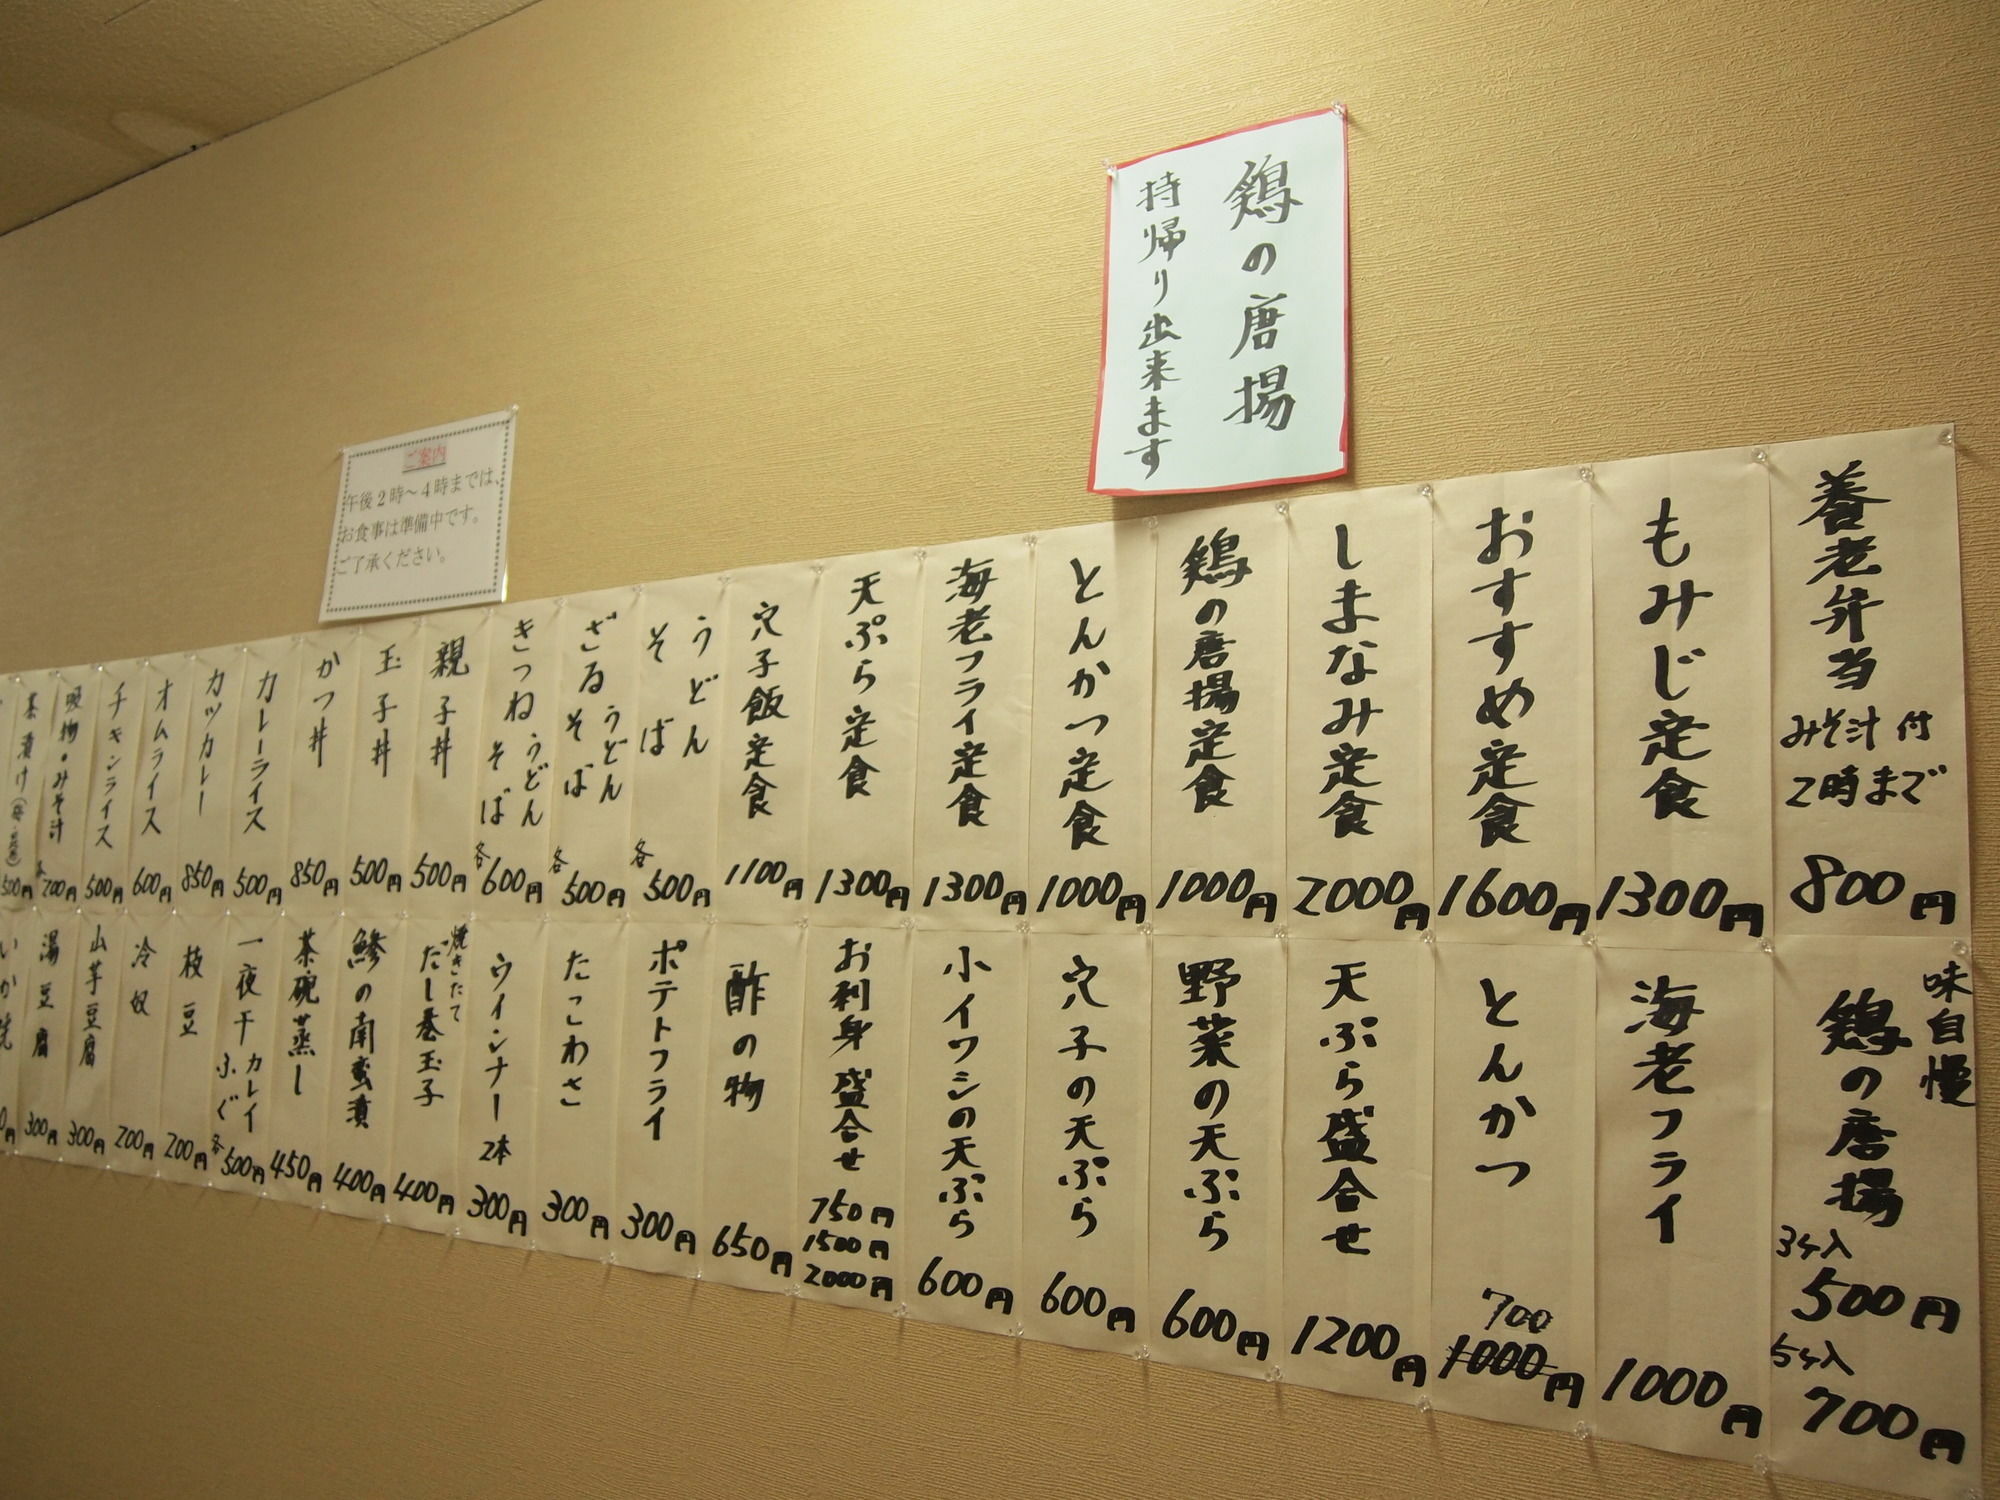 鶏の唐揚
持帰り出来ます
ご案内
午後2時~4時までは、
お食事は準備中です。
ご了承ください。
養老弁当
みそ汁付
2時まで
800円
もみじ定食
1300円
おすすめ定食
1600円
しまなみ定食
2000円
鶏の唐揚定食
1000円
とんかつ定食
1000円
海老フライ定食
1300円
天ぷら定食
1300円
穴子飯定食
1100円
うどん
そば
各500円
ざるうどん
そば
各500円
きつねうどん
そば
各600円
親子丼
500円
玉子丼
500円
かつ丼
850円
カレーライス
500円
カツカレー
850円
オムライス
600円
チキンライス
500円
吸物・みそ汁
各200円
茶漬け
500円
味自慢
鶏の唐揚
3ケ入
500円
5ケ入
700円
海老フライ
1000円
とんかつ
700
1000円
天ぷら盛合せ
1200円
野菜の天ぷら
600円
穴子の天ぷら
600円
小イワシの天ぷら
600円
お刺身盛合せ
750円
1500円
2000円
酢の物
650円
ポテトフライ
300円
たこわさ
300円
ウインナー2本
300円
焼きたて
だし巻玉子
400円
鰺の南蛮漬
400円
茶碗蒸し
450円
一夜干カレイ
ふぐ
各500円
枝豆
200円
冷奴
200円
山芋豆腐
300円
湯豆腐
300円
いか焼